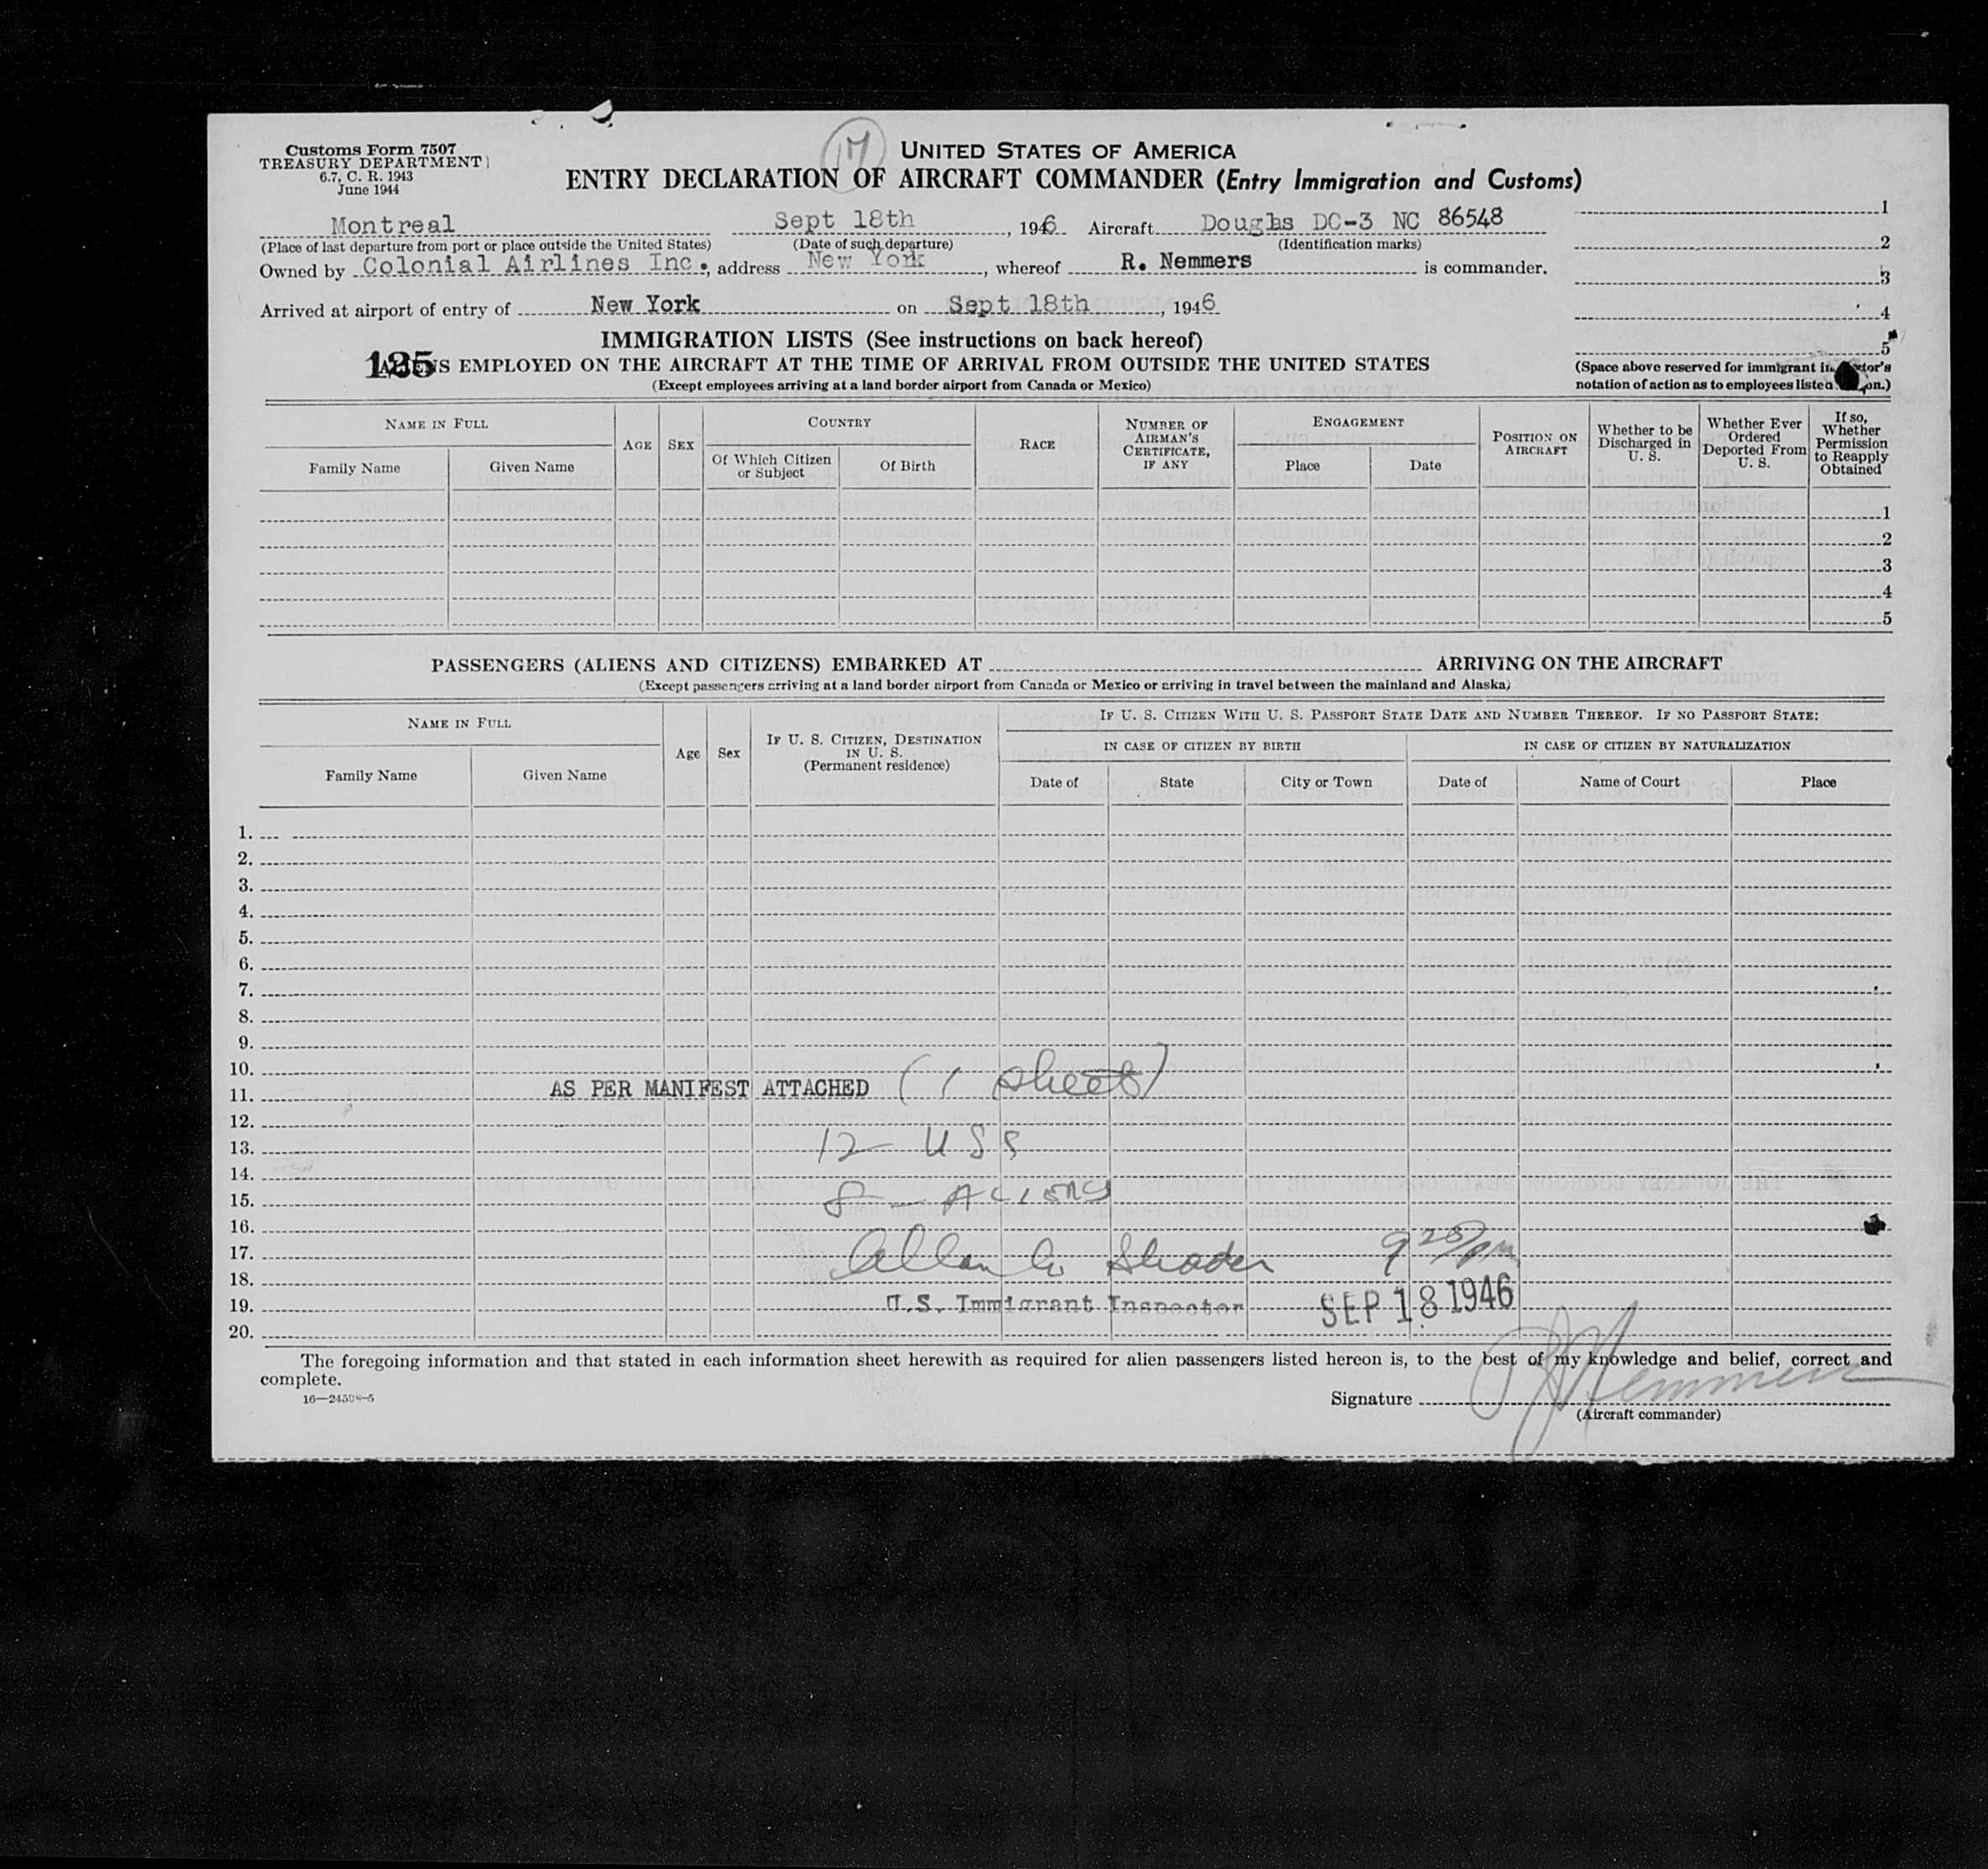 Customs Form 7507
TREASURY DEPARTMENT
6.7, C. R. 1943
June 1944
17
UNITED STATES OF AMERICA
ENTRY DECLARATION OF AIRCRAFT COMMANDER (Entry Immigration and Customs)
Montreal Sept 18th, 1946 Aircraft Douglas DC-3 NC 86548
(Place of last departure from port or place outside the United States) (Date of such departure) (Identification marks)
Owned by Colonial Airlines Inc., address New York, whereof R. Nemmers is commander.
Arrived at airport of entry of New York on Sept 18th, 1946
1
2
3
4
5
(Space above reserved for immigrant inspector's
notation of action as to employees listed on.)
IMMIGRATION LISTS (See instructions on back hereof)
125
ALIENS EMPLOYED ON THE AIRCRAFT AT THE TIME OF ARRIVAL FROM OUTSIDE THE UNITED STATES
(Except employees arriving at a land border airport from Canada or Mexico)
NAME IN FULL
Family Name Given Name
AGE SEX
COUNTRY
Of Which Citizen or Subject Of Birth
RACE
NUMBER OF AIRMAN'S CERTIFICATE, IF ANY
ENGAGEMENT
Place Date
POSITION ON AIRCRAFT
Whether to be Discharged in U. S.
Whether Ever Ordered Deported From U. S.
If so, Whether Permission to Reapply Obtained
1
2
3
4
5
PASSENGERS (ALIENS AND CITIZENS) EMBARKED AT ARRIVING ON THE AIRCRAFT
(Except passengers arriving at a land border airport from Canada or Mexico or arriving in travel between the mainland and Alaska)
NAME IN FULL
Family Name Given Name
Age Sex
IF U. S. CITIZEN, DESTINATION IN U. S.
(Permanent residence)
IF U. S. CITIZEN WITH U. S. PASSPORT STATE DATE AND NUMBER THEREOF. IF NO PASSPORT STATE:
IN CASE OF CITIZEN BY BIRTH IN CASE OF CITIZEN BY NATURALIZATION
Date of State City or Town Date of Name of Court Place
1.
2.
3.
4.
5.
6.
7.
8.
9.
10.
11. AS PER MANIFEST ATTACHED (1 sheet)
12.
13. 12 - USS
14.
15. 8 - ALIENS
16.
17. Allan G. Shader 9 25/pm
18.
19. U.S. Immigrant Inspector SEP 18 1946
20.
The foregoing information and that stated in each information sheet herewith as required for alien passengers listed hereon is, to the best of my knowledge and belief, correct and
complete.
16—24598-5
Signature R Nemmers
(Aircraft commander)